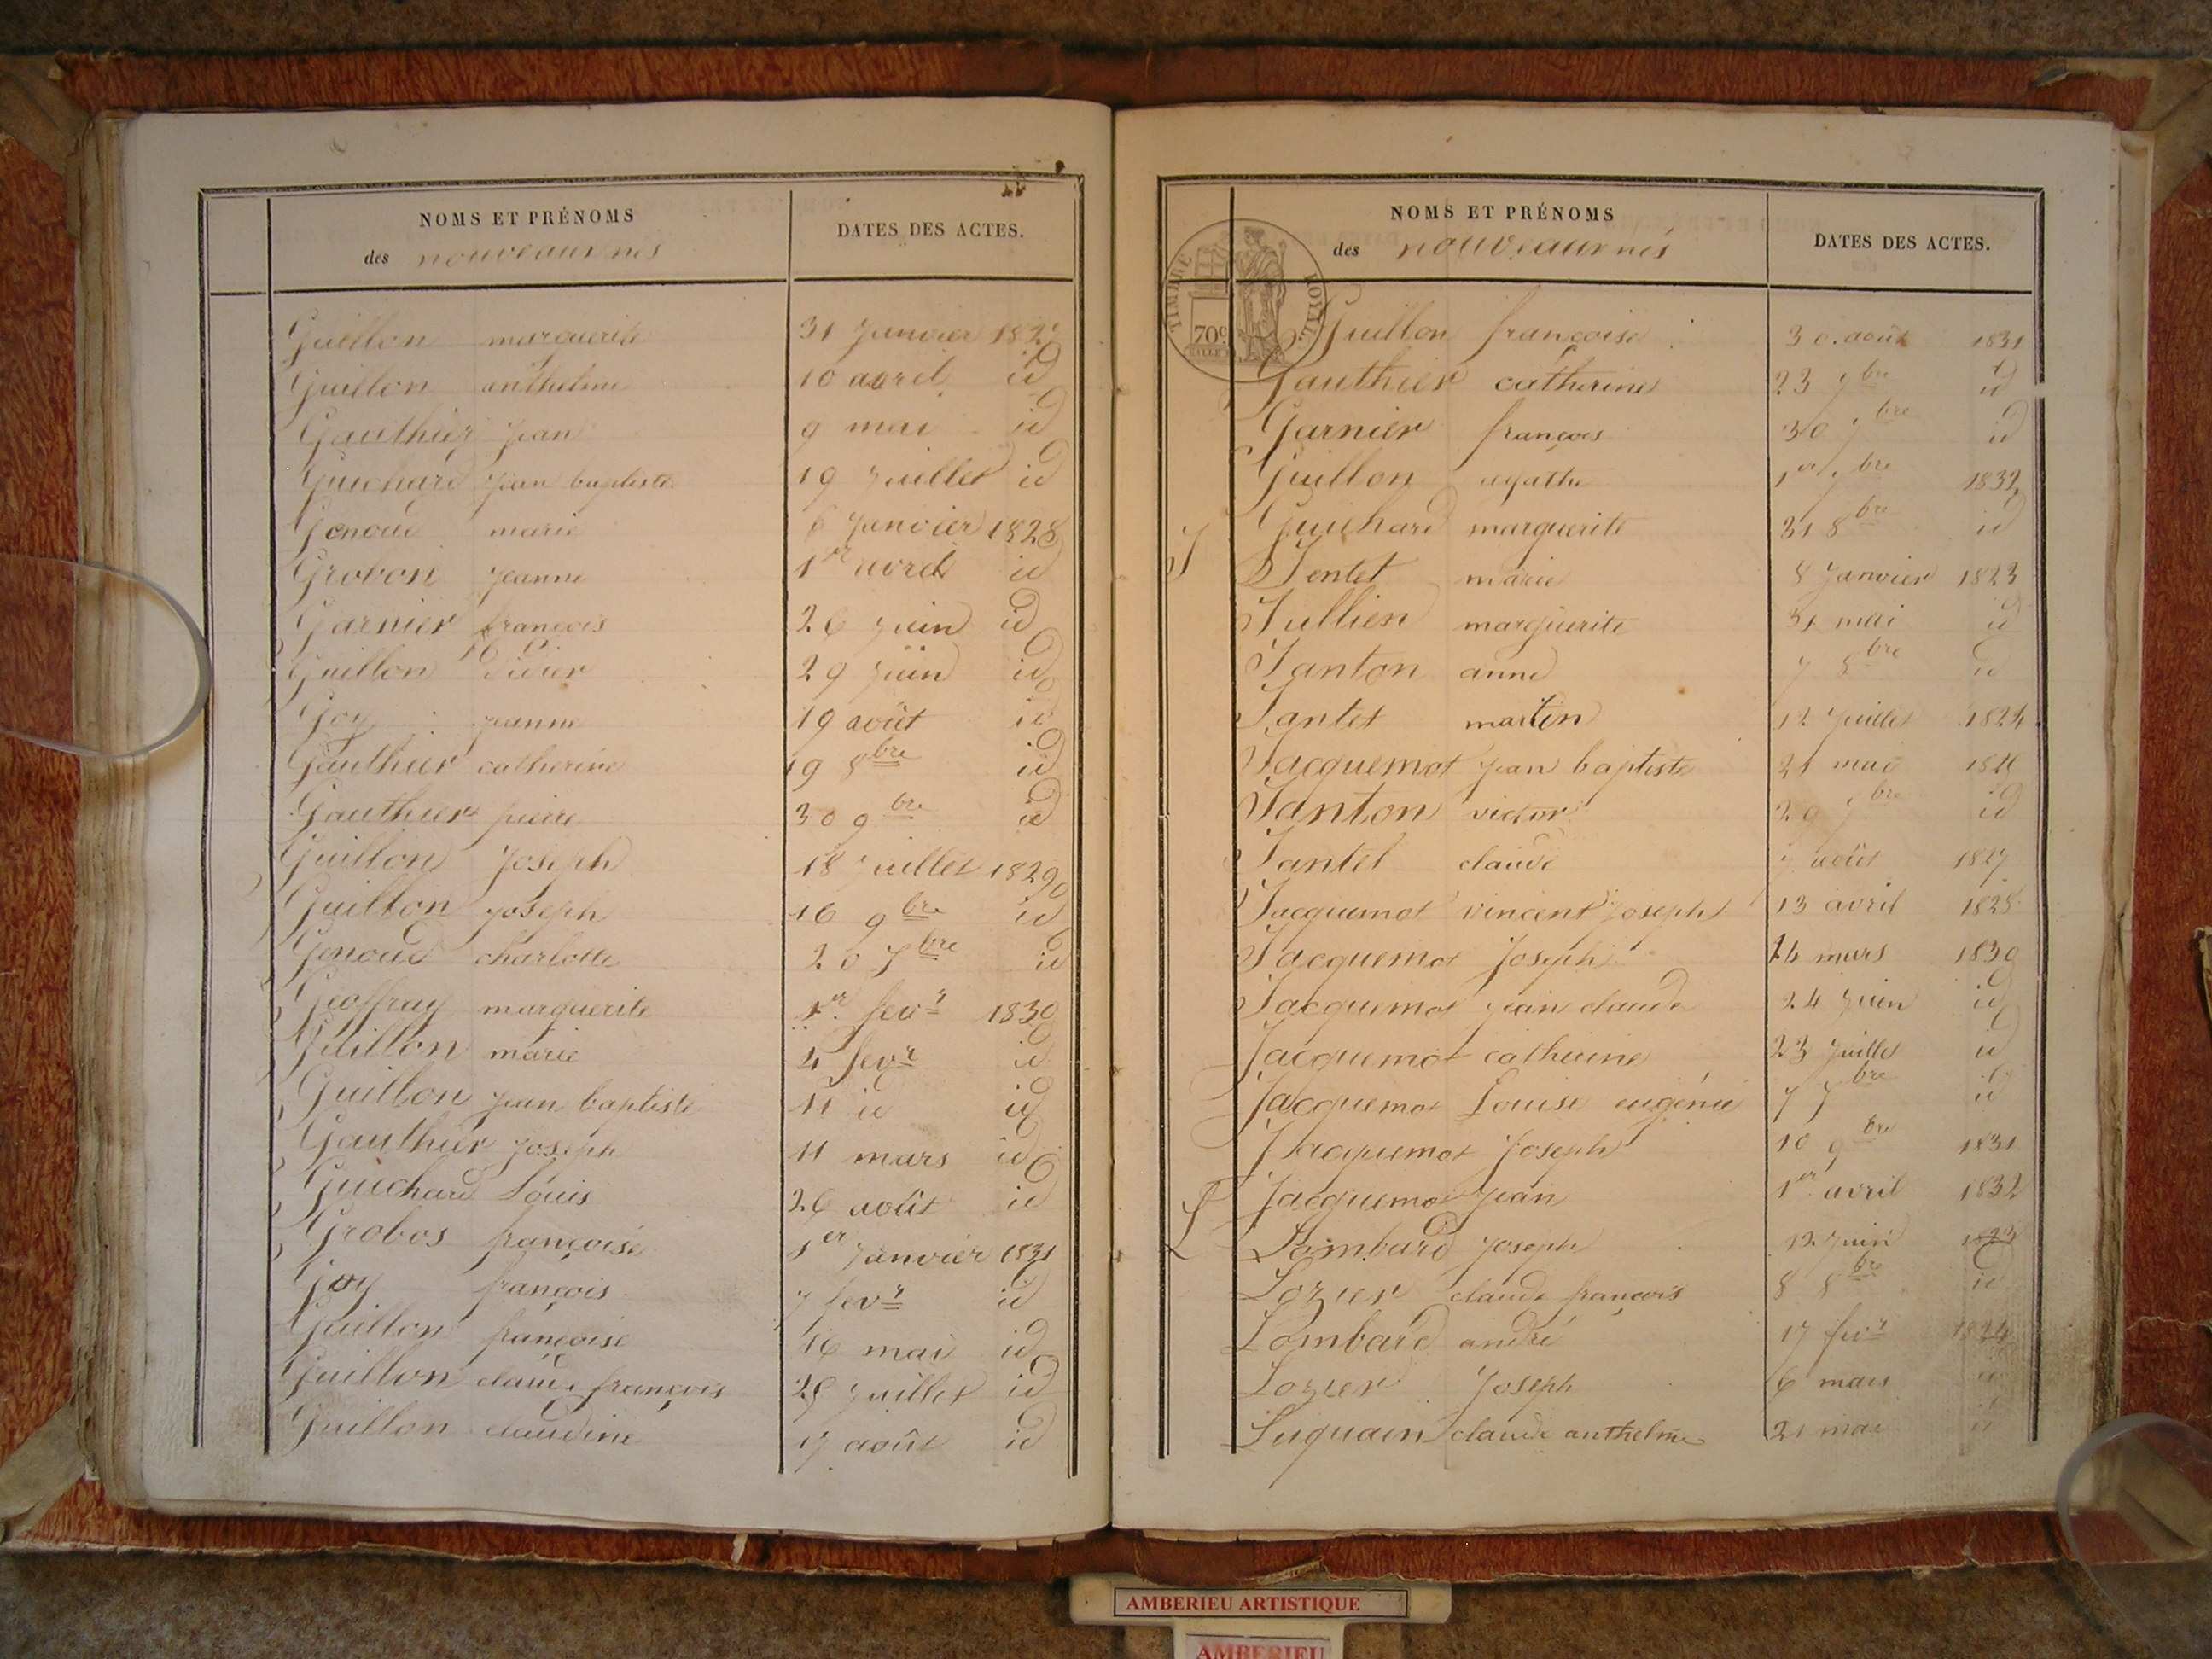 NOMS ET PRÉNOMS
des nouveaux nés
DATES DES ACTES.
Guillon marguerite 31 Janvier 1827
Guillon anthelme 10 avril id
Gauthier Jean 9 mai id
Guichard Jean baptiste 19 Juillet id
Genoud marie 6 Janvier 1828
Grobon Jeanne 1er avril id
Garnier françois 26 Juin id
Guillon Didier 29 Juin id
Goy Jeanne 19 août id
Gauthier catherine 19 8bre id
Gauthier pierre 30 9bre id
Guillon Joseph 18 Juillet 1829
Guillon Joseph 16 9bre id
Genoud charlotte 20 7bre id
Geoffray marguerite 1er fevr 1830
Guillon marie 4 fevr id
Guillon Jean baptiste 11 id id
Gauthier Joseph 11 mars id
Guichard Louis 26 août id
Grobos françoise 1er Janvier 1831
Goy françois 7 fevr id
Guillon françoise 16 mai id
Guillon claude françois 28 Juillet id
Guillon claudine 17 août id
NOMS ET PRÉNOMS
des nouveaux nés
DATES DES ACTES.
TIMBRE ROYAL
70c
Guillon françoise 30 août 1831
Gauthier catherine 23 7bre id
Garnier françois 30 7bre id
Guillon agathe 1er 7bre 1832
Guichard marguerite 31 8bre id
J
Jentet marie 8 Janvier 1823
Jullien marguerite 31 mai id
Janton anne 7 8bre id
Jantet martin 12 Juillet 1824
Jacquemot Jean baptiste 21 mai 1826
Janton victor 20 7bre id
Jantet claude 7 août 1827
Jacquemot vincent Joseph 13 avril 1828
Jacquemot Joseph 14 mars 1830
Jacquemot Jean claude 24 Juin id
Jacquemot catherine 23 Juillet id
Jacquemot Louise eugénie 7 7bre id
Jacquemot Joseph 10 9bre 1831
Jacquemot Jean 1er avril 1832
L
Lombard Joseph 12 Juin 1823
Lozier claude françois 8 8bre id
Lombard andré 17 fevr 1824
Lozier Joseph 6 mars id
Luquain claude anthelme 21 mai id
AMBERIEU ARTISTIQUE
AMBERIEU